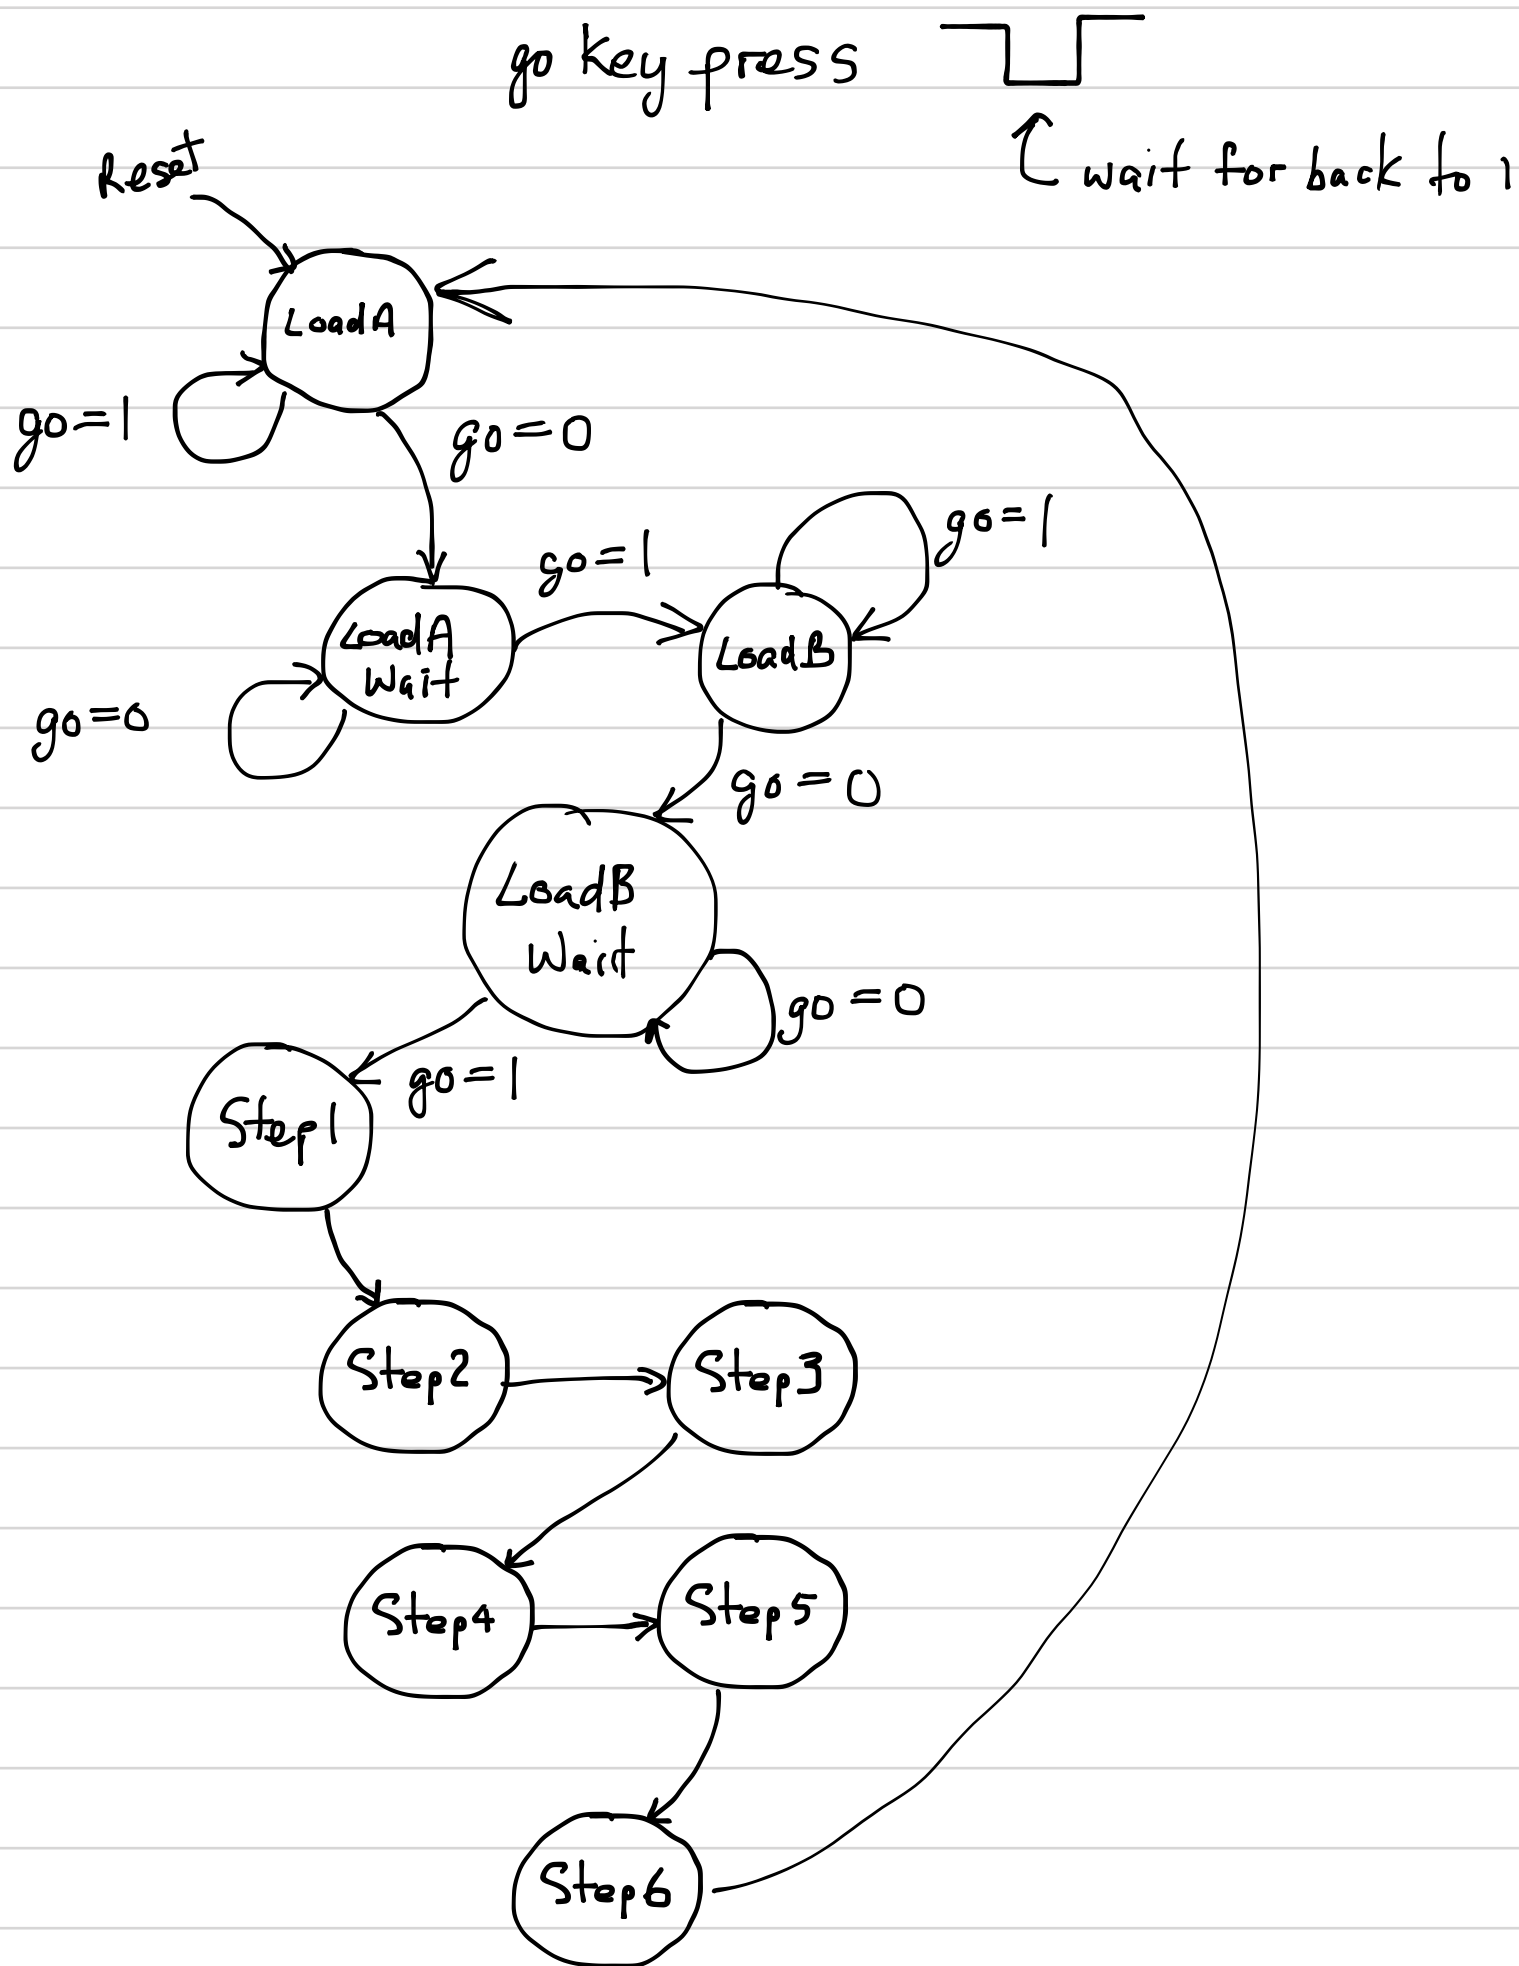 go key press
wait for back to 1
Reset
LoadA
go=1
go=0
go=1
go=1
LoadA
Wait
LoadB
go=0
go=0
LoadB
Wait
go=0
go=1
Step1
Step2
Step3
Step4
Step5
Step6